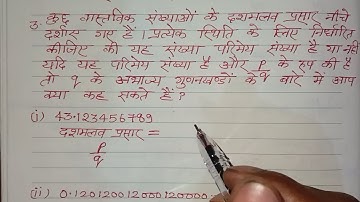 3. कुछ वास्तविक संख्याओं के दशमलव प्रसार नीचे
दर्शाए गए हैं। प्रत्येक स्थिति के लिए निर्धारित
कीजिए की यह संख्या परिमेय संख्या है या नहीं
यदि यह परिमेय संख्या है और p के रूप की है
q
तो q के अभाज्य गुणनखण्डों के बारे में आप
क्या कह सकते हैं?
(i) 43.123456789
दशमलव प्रसार =
p
q
(ii) 0.120120012000120000